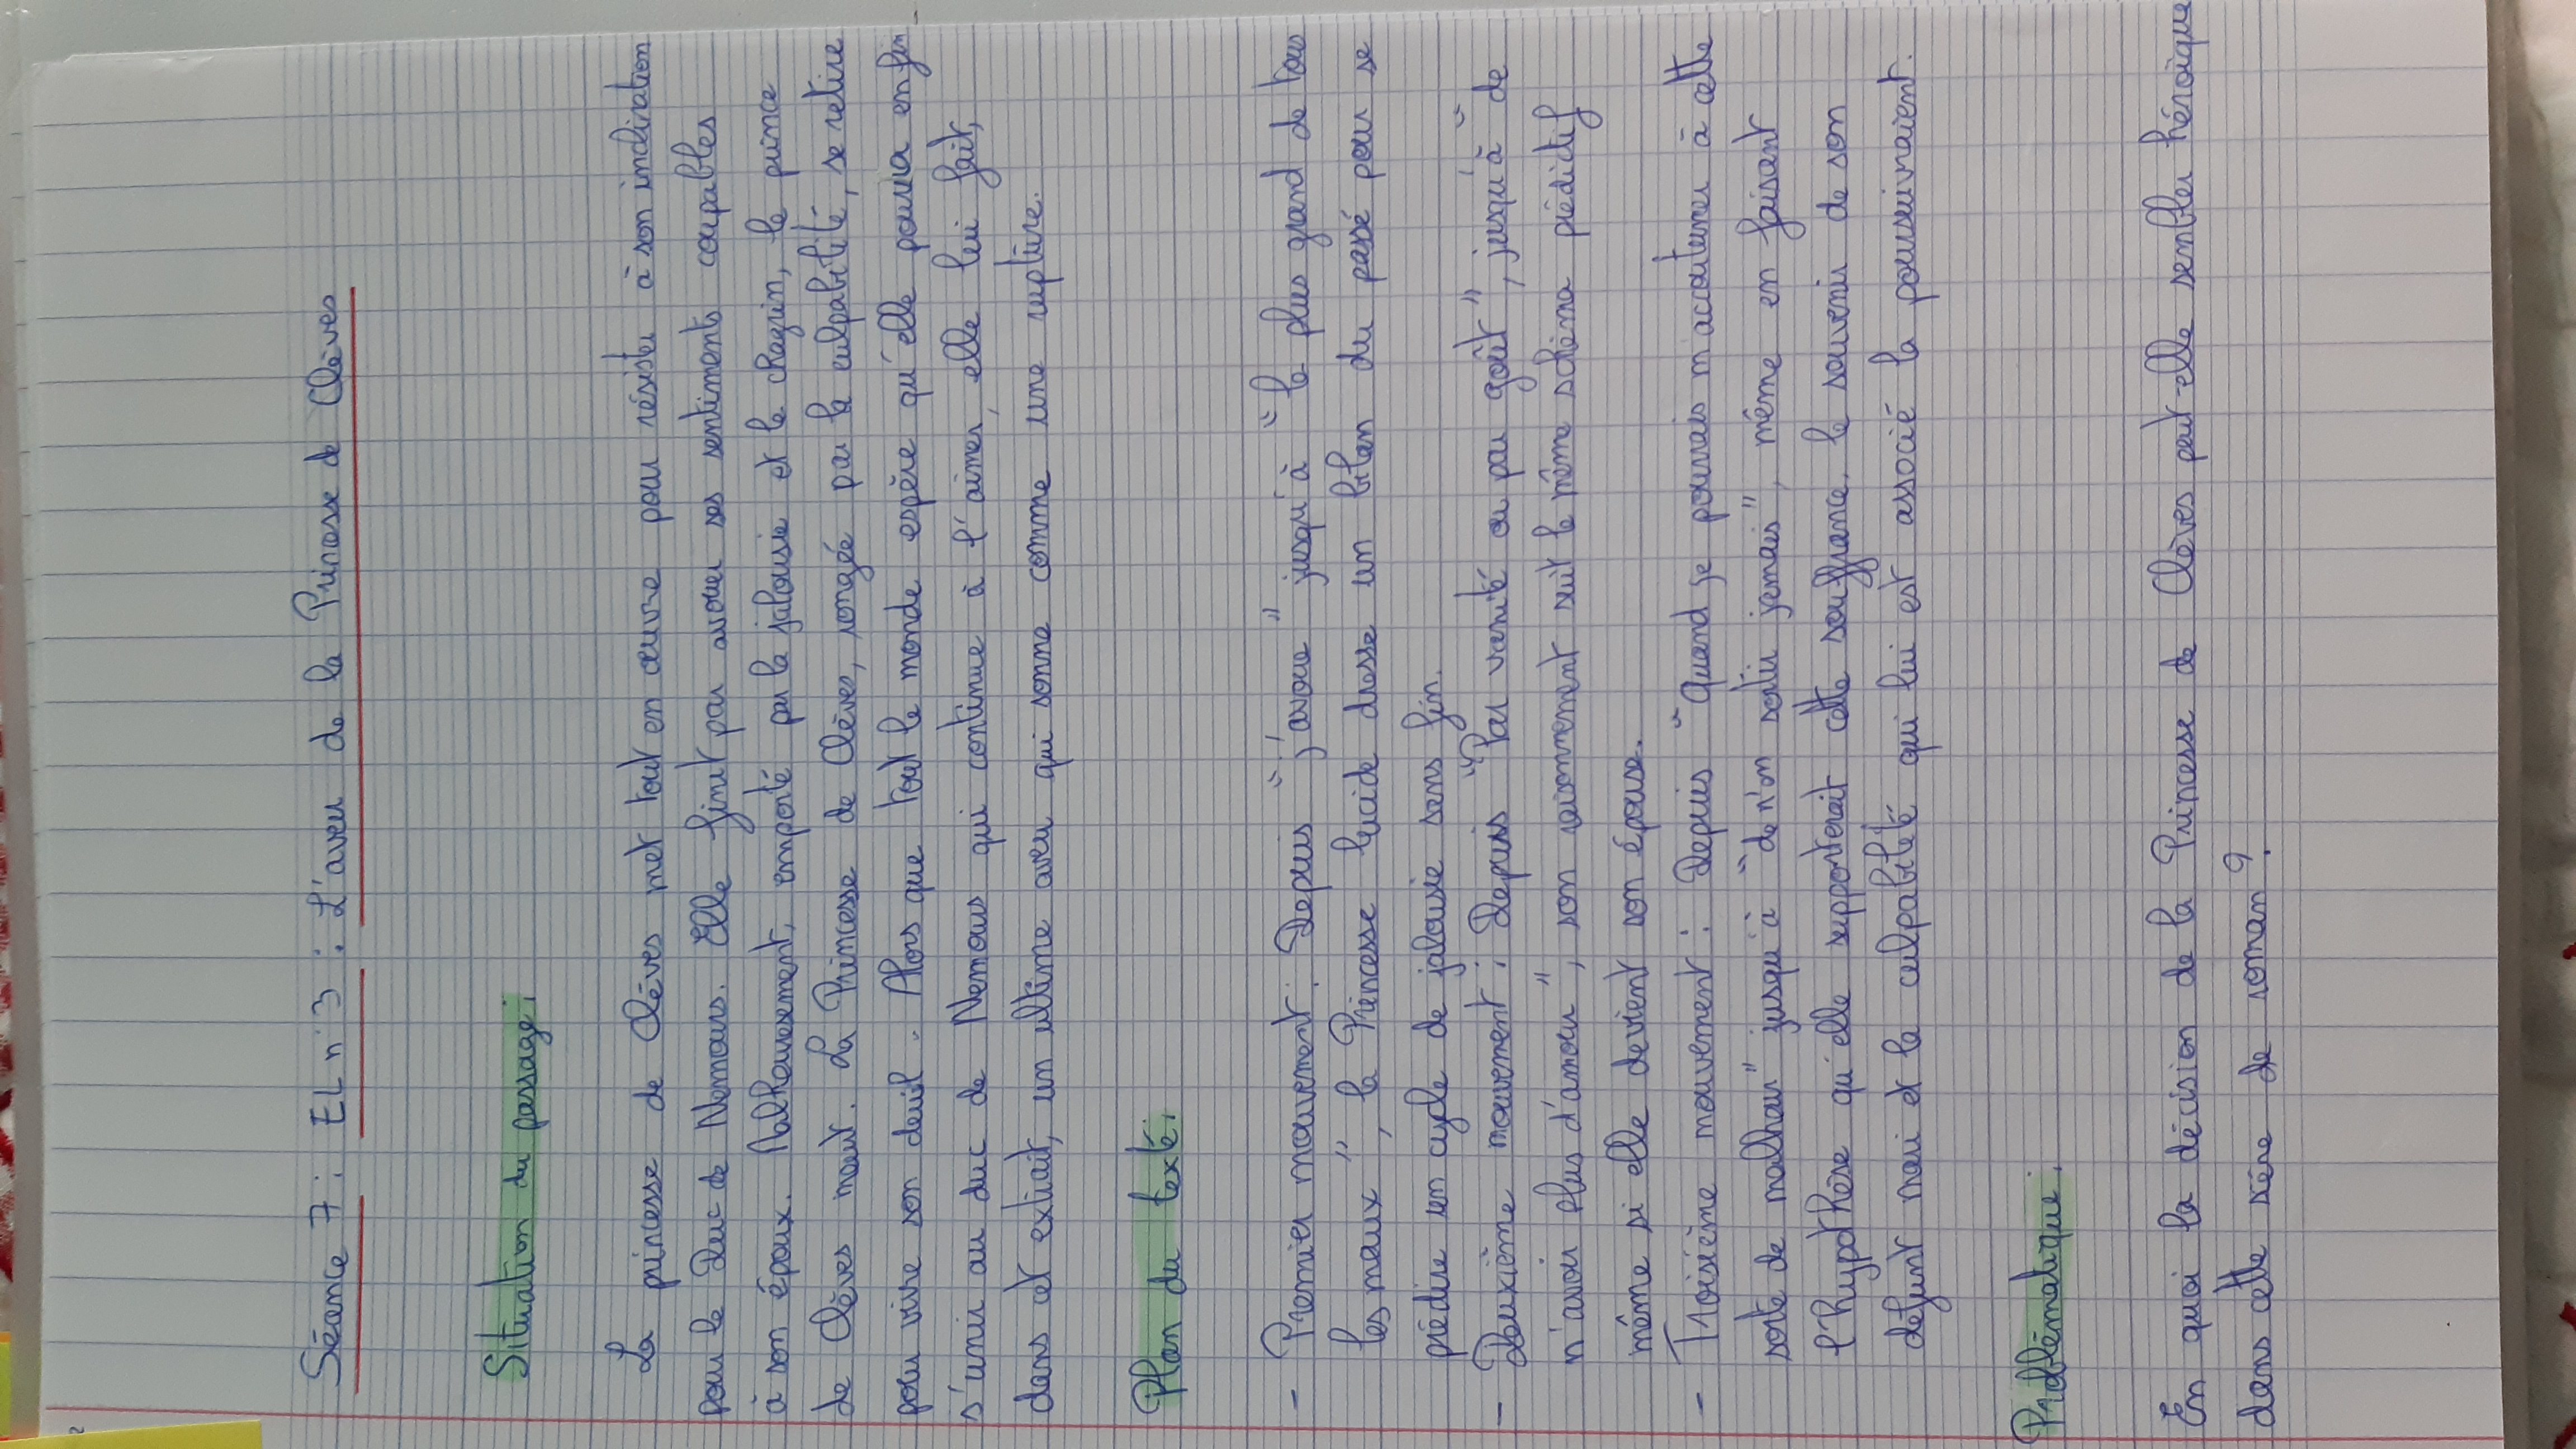 2
Séance 7 : EL n°3 : L'aveu de la Princesse de Clèves
Situation du passage :
La princesse de Clèves met tout en œuvre pour résister à son inclination
pour le Duc de Nemours. Elle finit par avouer ses sentiments coupables
à son époux. Malheureusement, emporté par la jalousie et le chagrin, le prince
de Clèves meurt. La Princesse de Clèves, rongée par la culpabilité, se retire
pour vivre son deuil. Alors que tout le monde espère qu'elle pourra enfin
s'unir au duc de Nemours qui continue à l'aimer, elle lui fait,
dans cet extrait, un ultime aveu qui sonne comme une rupture.
Plan du texte :
- Premier mouvement : Depuis "j'avoue" jusqu'à "le plus grand de tous
les maux", la Princesse lucide dresse un bilan du passé pour se
prédire un cycle de jalousie sans fin.
- Deuxième mouvement : Depuis "Par vanité ou par goût", jusqu'à "de
n'avoir plus d'amour", son raisonnement suit le même schéma prédictif
même si elle devient son épouse.
- Troisième mouvement : Depuis "Quand je pourrais m'accoutumer à cette
sorte de malheur" jusqu'à "de n'en sortir jamais", même en faisant
l'hypothèse qu'elle supporterait cette souffrance, le souvenir de son
défunt mari et la culpabilité qui lui est associé la poursuivraient.
Problématique :
En quoi la décision de la Princesse de Clèves peut-elle sembler héroïque
dans cette scène de roman ?